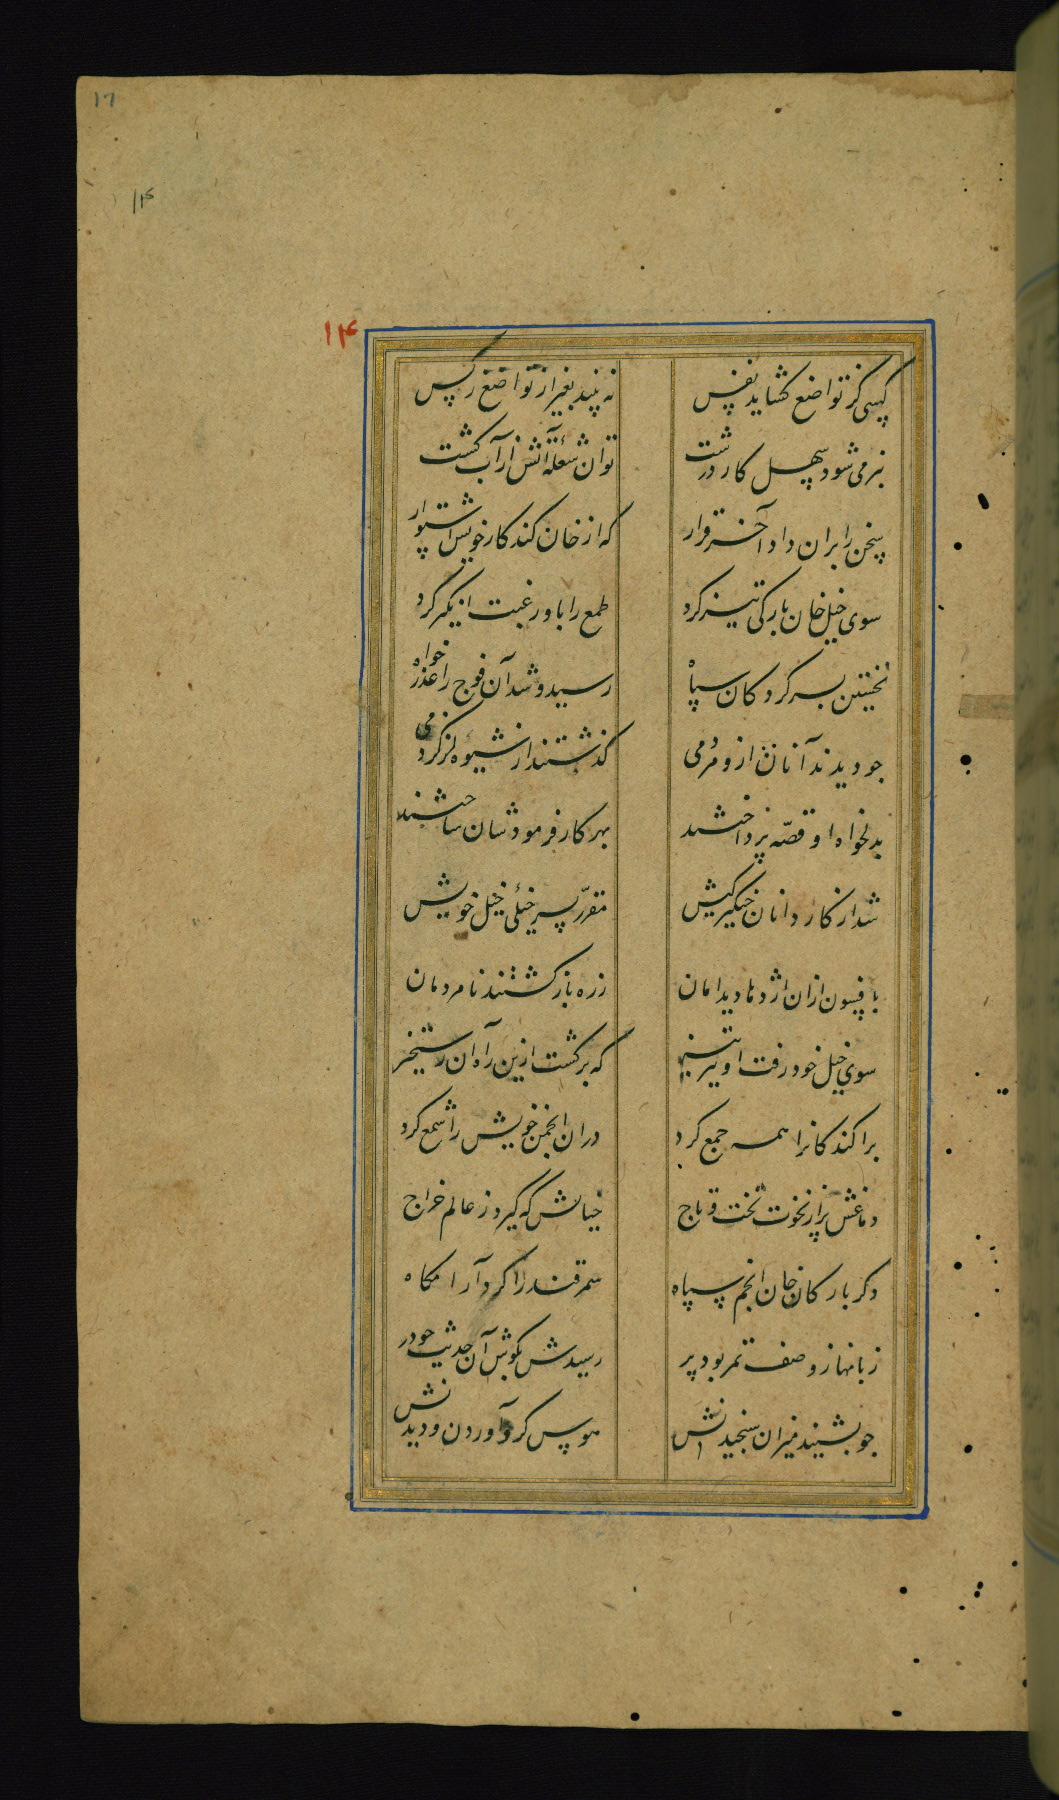 ۱۶
۱۴
۱۴
کسی کز تواضع کشاید نفس نه بیند بغیر از تواضع ز کس
بنرمی شود سهل کار درشت توان شعلهٔ آتش از آب کشت
سخن را بران داد آخر قرار که از خان کند کار خویش استوار
سوی خیل خان بارکی تیز کرد طمع را باو رغبت انکیز کرد
نخستین بسرکردکان سپاه رسید و شد آن فوج را عذر خواه
جو دیدند آنان ازو مردمی کذشتند از شیوه کژدمی
بدلخواه او قصه پرداختند بهر کار فرمودشان ساختند
شد از کاردانان خنکیز کیش مقرر بسرخیلی خیل خویش
بافسون ازان اژدها دید امان زره باز کشتند نامردمان
سوی خیل خود رفت او نیز تیز که برکشت ازین راه آن رستخیز
براکندکانرا همه جمع کرد دران انجمن خویش را شمع کرد
دماغش پر از نخوت تخت و تاج خیالش که کیرد ز عالم خراج
دکر بار کان خان انجم سپاه سمرقند را کرد آرامکاه
زبانها ز وصف تمر بود پر رسیدش بکوش آن حدیث جو در
جو بشنید میزان سنجیدانش هوس کرد آوردن و دیدنش